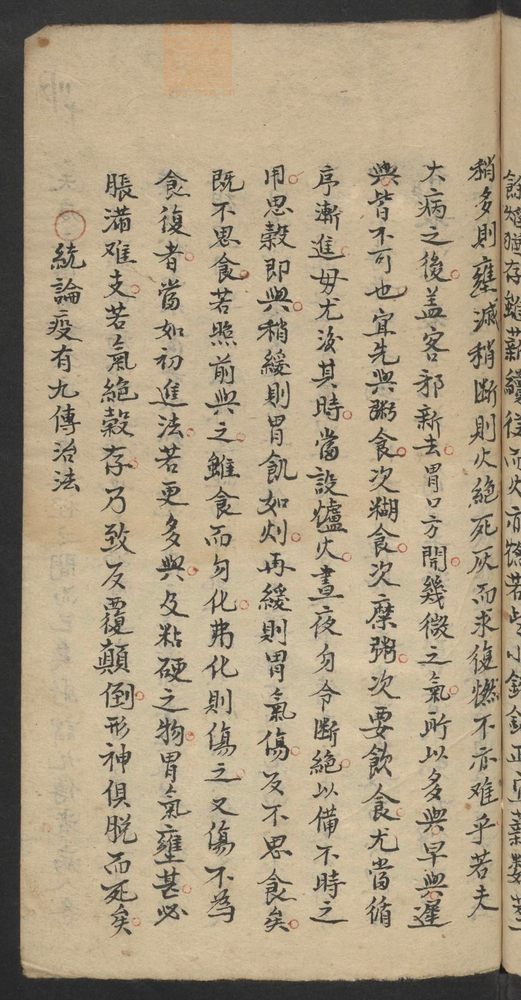 稍多則壅滅稍斷則火絕死灰而求復燃不亦难乎若夫
大病之後盖客邪新去胃口方開幾微之氣所以多與早與遲
與皆不可也宜先與粥食次糊食次糜粥次要飲食尤當循
序漸進毋尤後其時當設爐火晝夜勿令斷絕以備不時之
用思榖即與稍緩則胃飢如灼再緩則胃氣傷反不思食矣
既不思食若照前與之雖食而勿化弗化則傷之又傷不為
食復者當如初進法若更多與及粘硬之物胃氣壅甚必
脹滿难支若氣絕榖存乃致反覆顛倒形神俱脱而死矣
統論疫有九傳治法